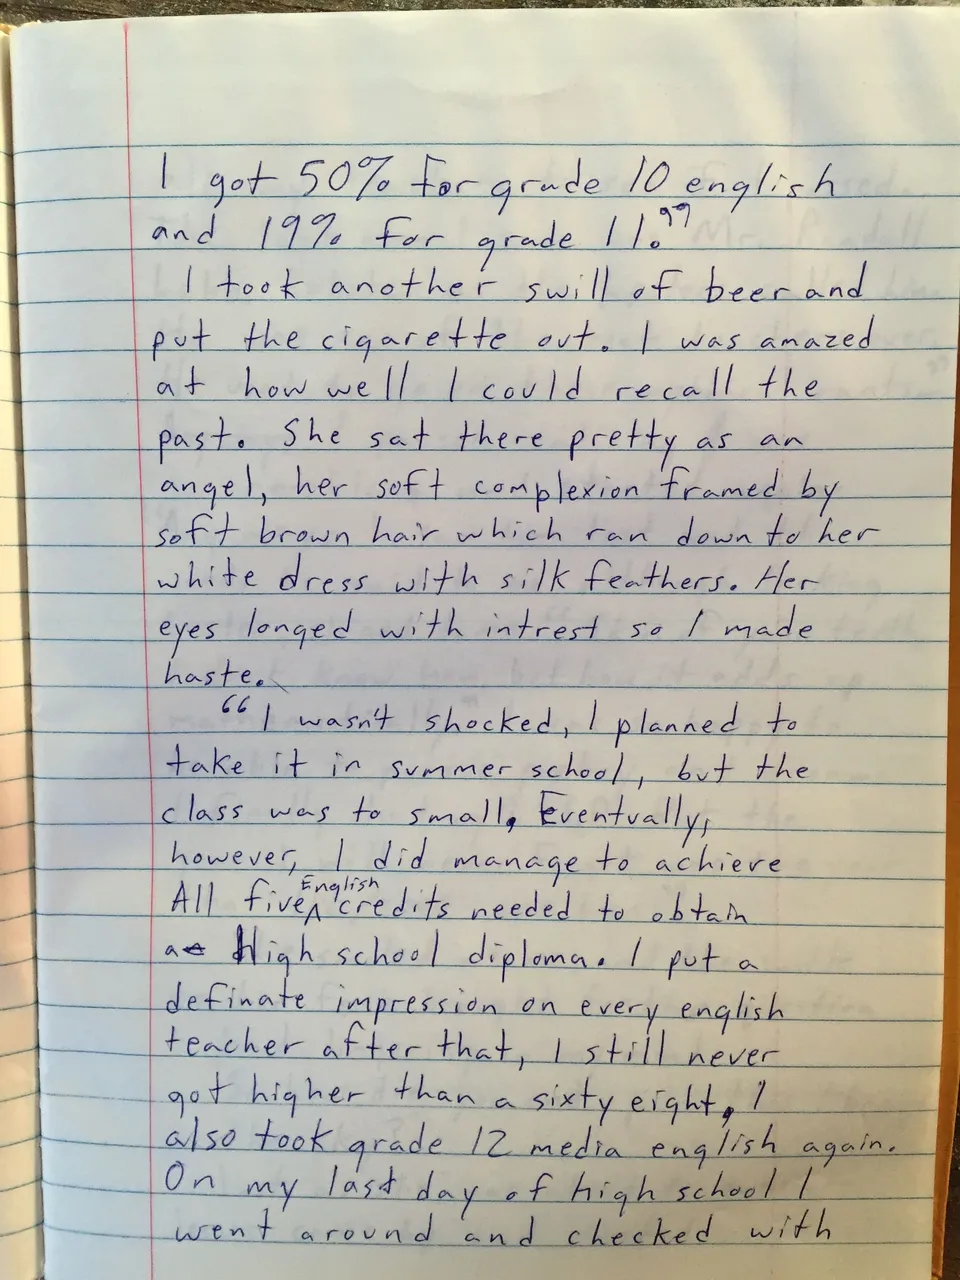 I got 50% for grade 10 english
and 19% for grade 11."
I took another swill of beer and
put the cigarette out. I was amazed
at how well I could recall the
past. She sat there pretty as an
angel, her soft complexion framed by
soft brown hair which ran down to her
white dress with silk feathers. Her
eyes longed with intrest so I made
haste.
"I wasn't shocked, I planned to
take it in summer school, but the
class was to small. Eventually,
however, I did manage to achieve
All five English credits needed to obtain
a High school diploma. I put a
definate impression on every english
teacher after that, I still never
got higher than a sixty eight, I
also took grade 12 media english again.
On my last day of high school I
went around and checked with